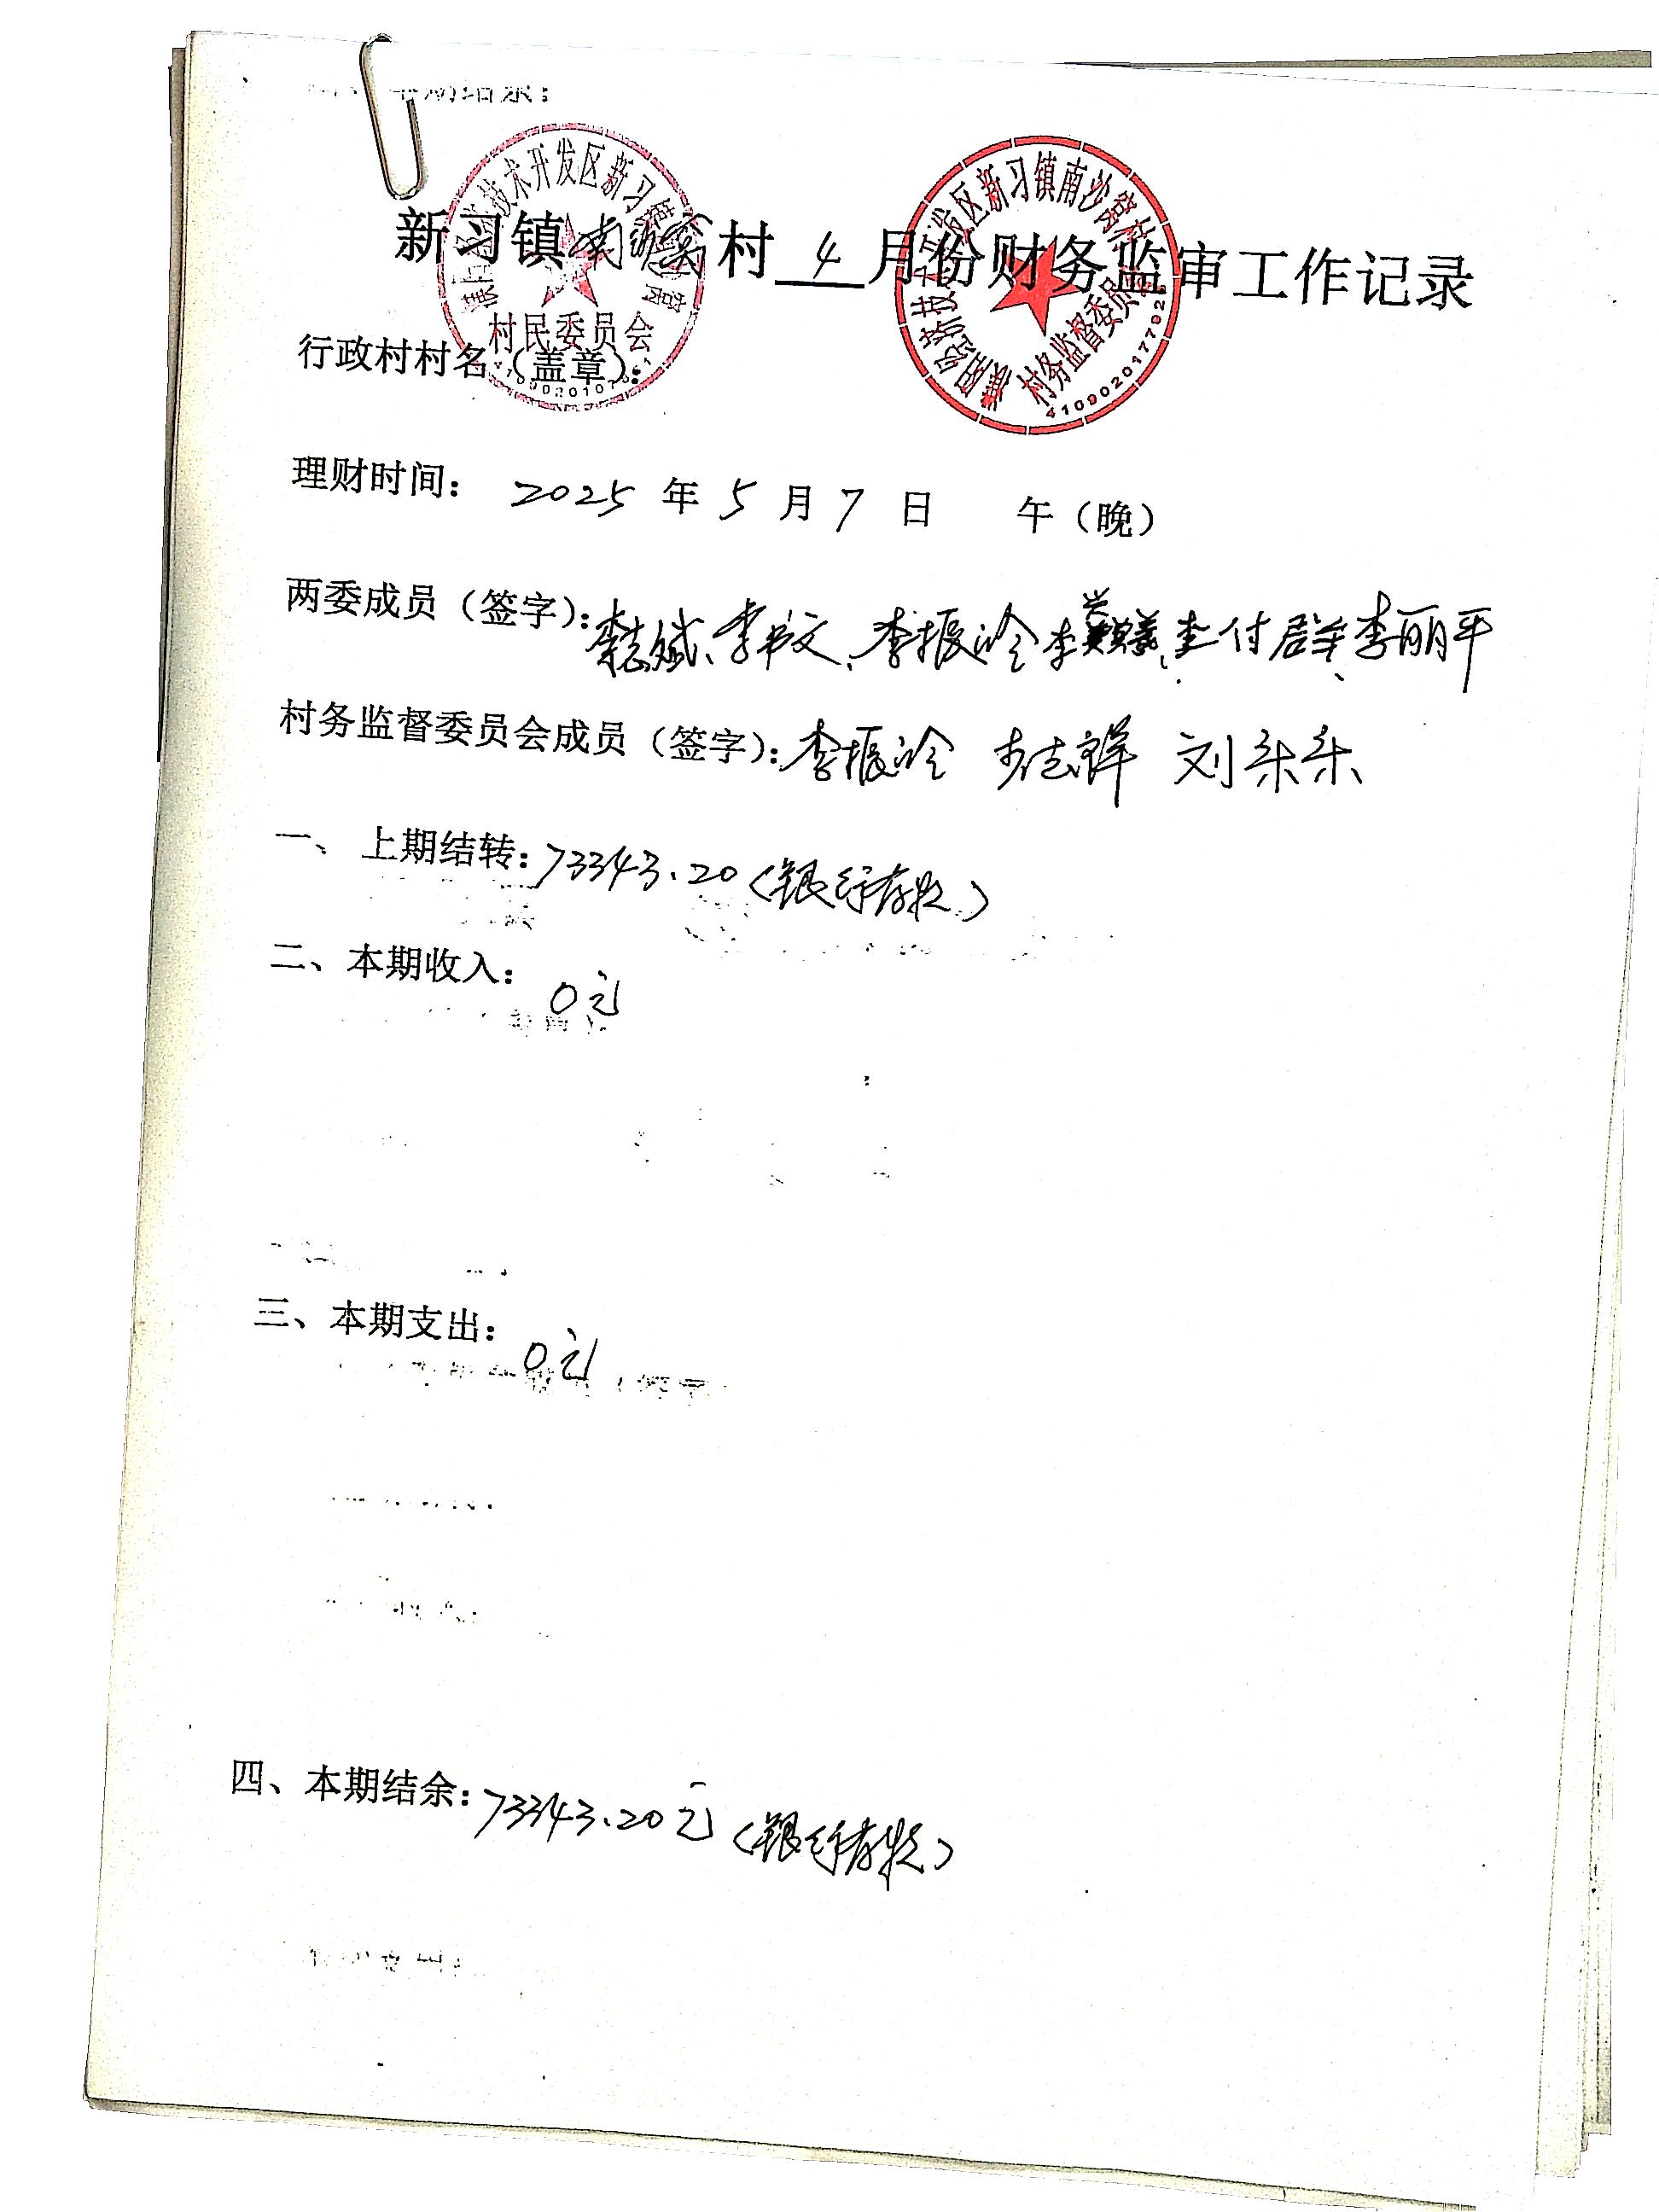 新习镇南沙窝村 4 月份财务监审工作记录
行政村村名（盖章）：
村民委员会
濮阳经济技术开发区新习镇南沙窝村
村务监督委员会
理财时间： 2025 年 5 月 7 日 午（晚）
两委成员（签字）：李志斌、李书文、李振冷 李付群、李丽平
村务监督委员会成员（签字）：李振冷 李志祥 刘乐乐
一、 上期结转：73343.20（银行存款）
二、本期收入：
0元
三、本期支出：
0元
四、本期结余：73343.20元（银行存款）